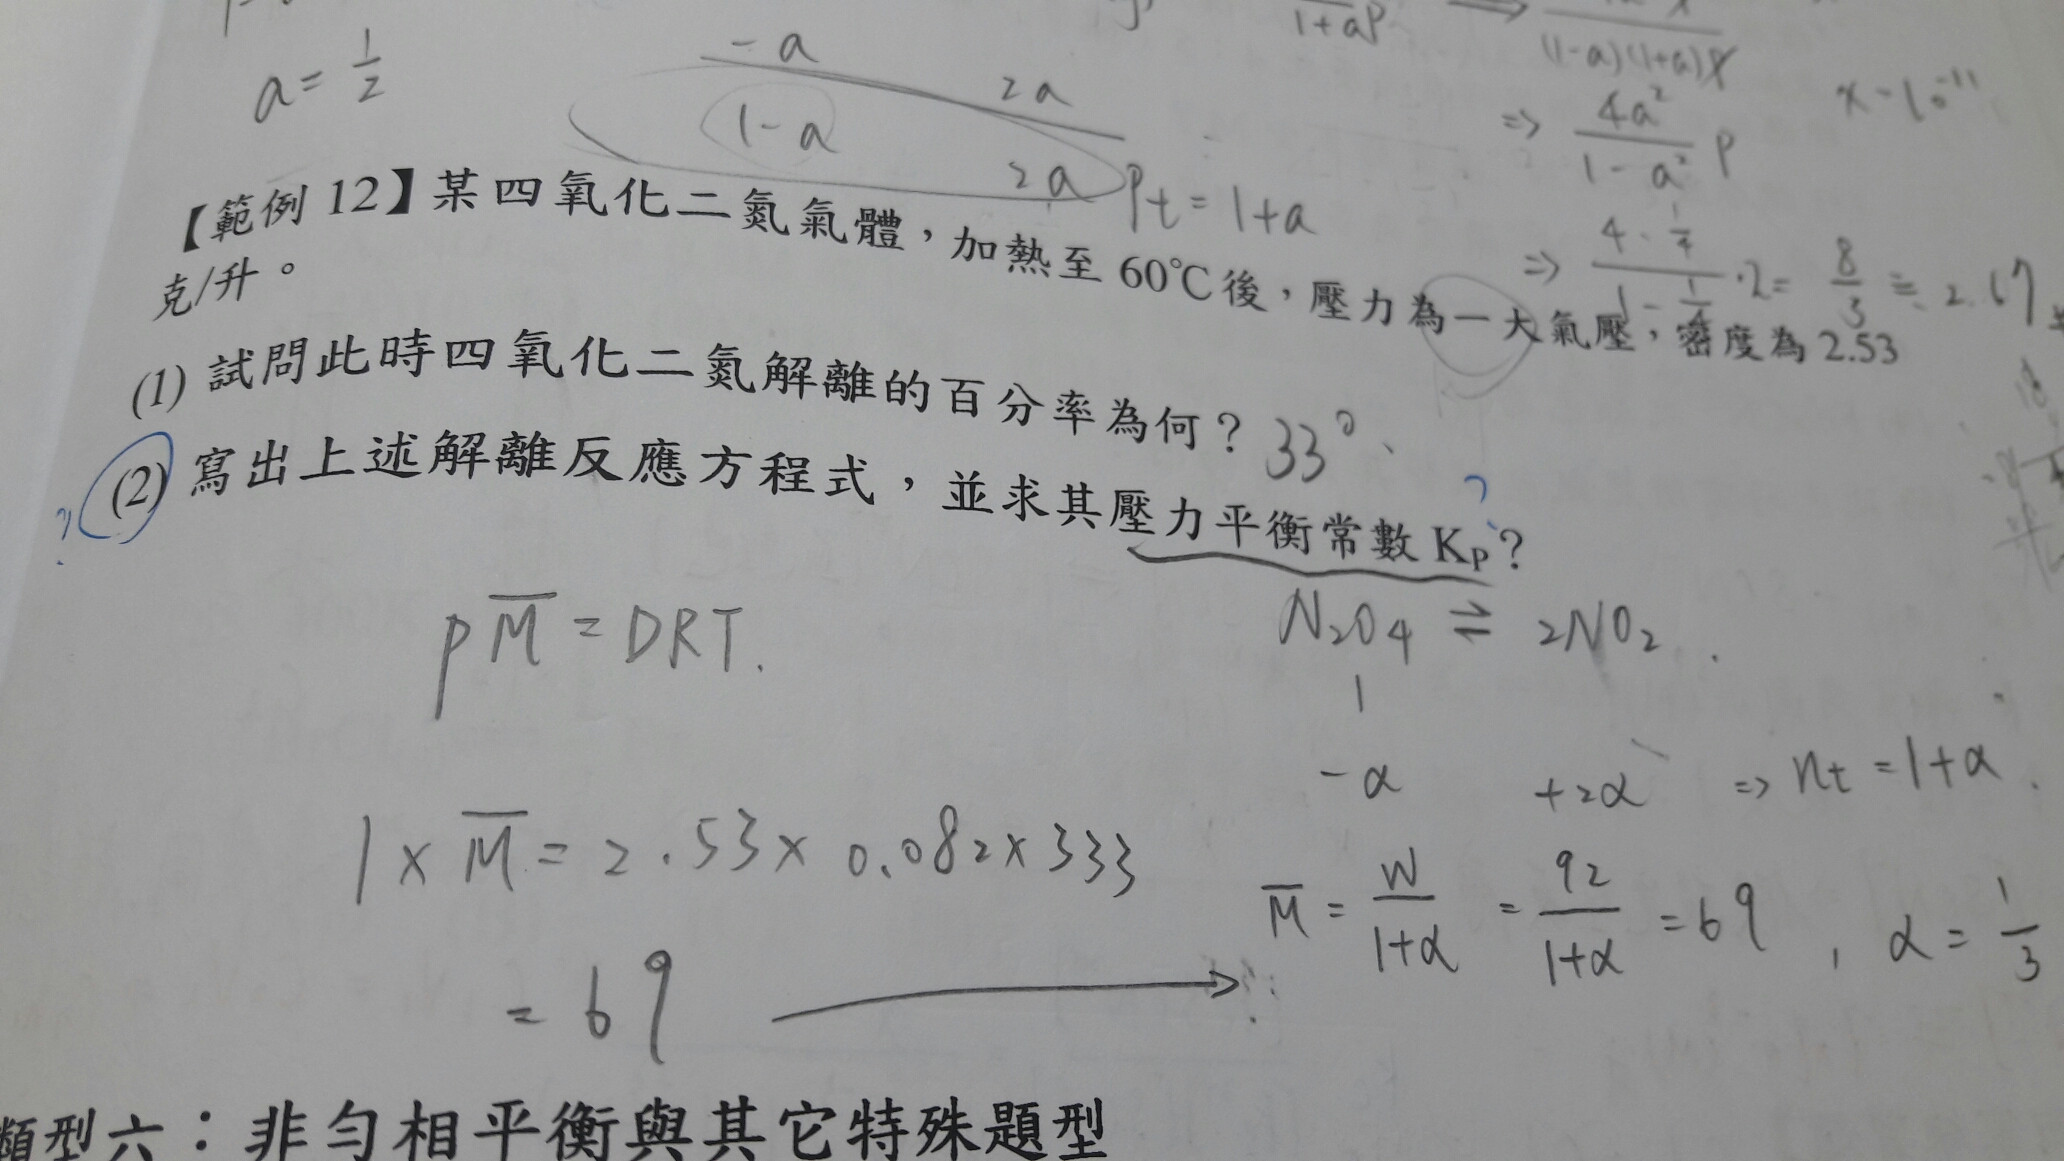 1+aP
(1-a)(1+a)
a = 1/2
-a
2a
1-a
2a
Pt = 1+a
=> 4a² / 1-a² P
x-10⁻¹¹
=> 4·1/4 / 1-1/4 ·2 = 8/3 ≒ 2.67
【範例 12】某四氧化二氮氣體，加熱至 60℃後，壓力為一大氣壓，密度為 2.53
克/升。
(1) 試問此時四氧化二氮解離的百分率為何？ 33
(2) 寫出上述解離反應方程式，並求其壓力平衡常數 KP？
?
?
PM̅ = DRT.
N₂O₄ ⇌ 2NO₂.
1
-α +2α => nt = 1+α.
1 × M̅ = 2.53 × 0.082 × 333
M̅ = W/1+α = 92/1+α = 69, α = 1/3
= 69 →
類型六：非勻相平衡與其它特殊題型